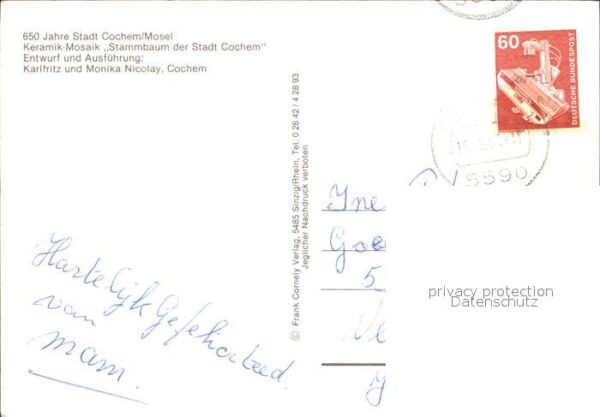 650 Jahre Stadt Cochem/Mosel
Keramik-Mosaik „Stammbaum der Stadt Cochem"
Entwurf und Ausführung:
Karlfritz und Monika Nicolay, Cochem
© Frank Cornely Verlag, 5485 Sinzig/Rhein, Tel. 0 26 42 / 4 28 93
Jeglicher Nachdruck verboten
60
DEUTSCHE BUNDESPOST
5590
Hartelijk Gefeliciteerd
van
mam.
Ine
Goe
5
Ve
privacy protection
Datenschutz